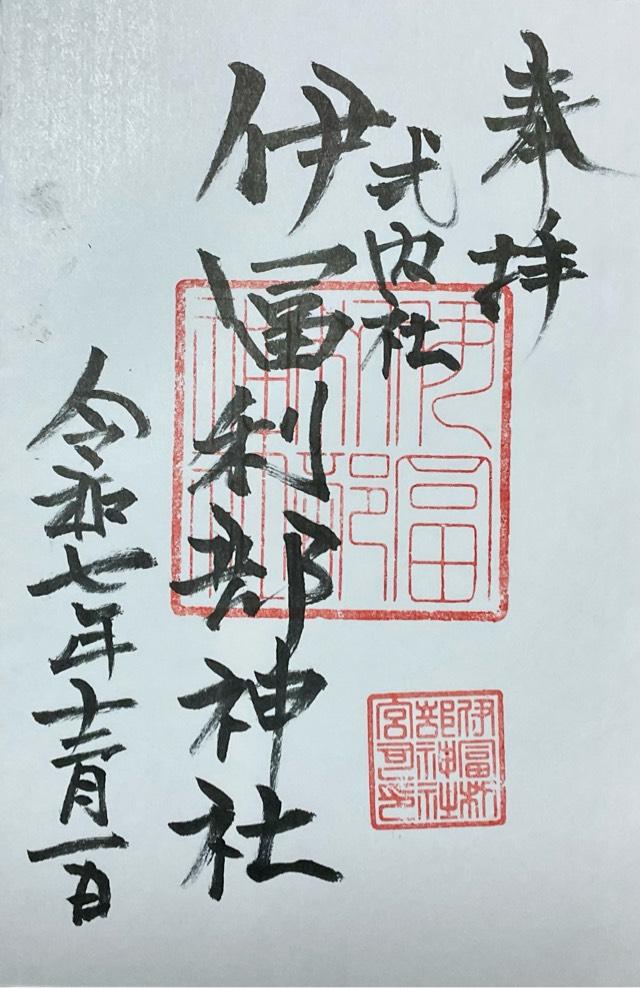 奉拝
式内社
伊冨利部神社
令和七年十二月一日
伊冨
利部
神社
伊冨利
部神社
宮司印